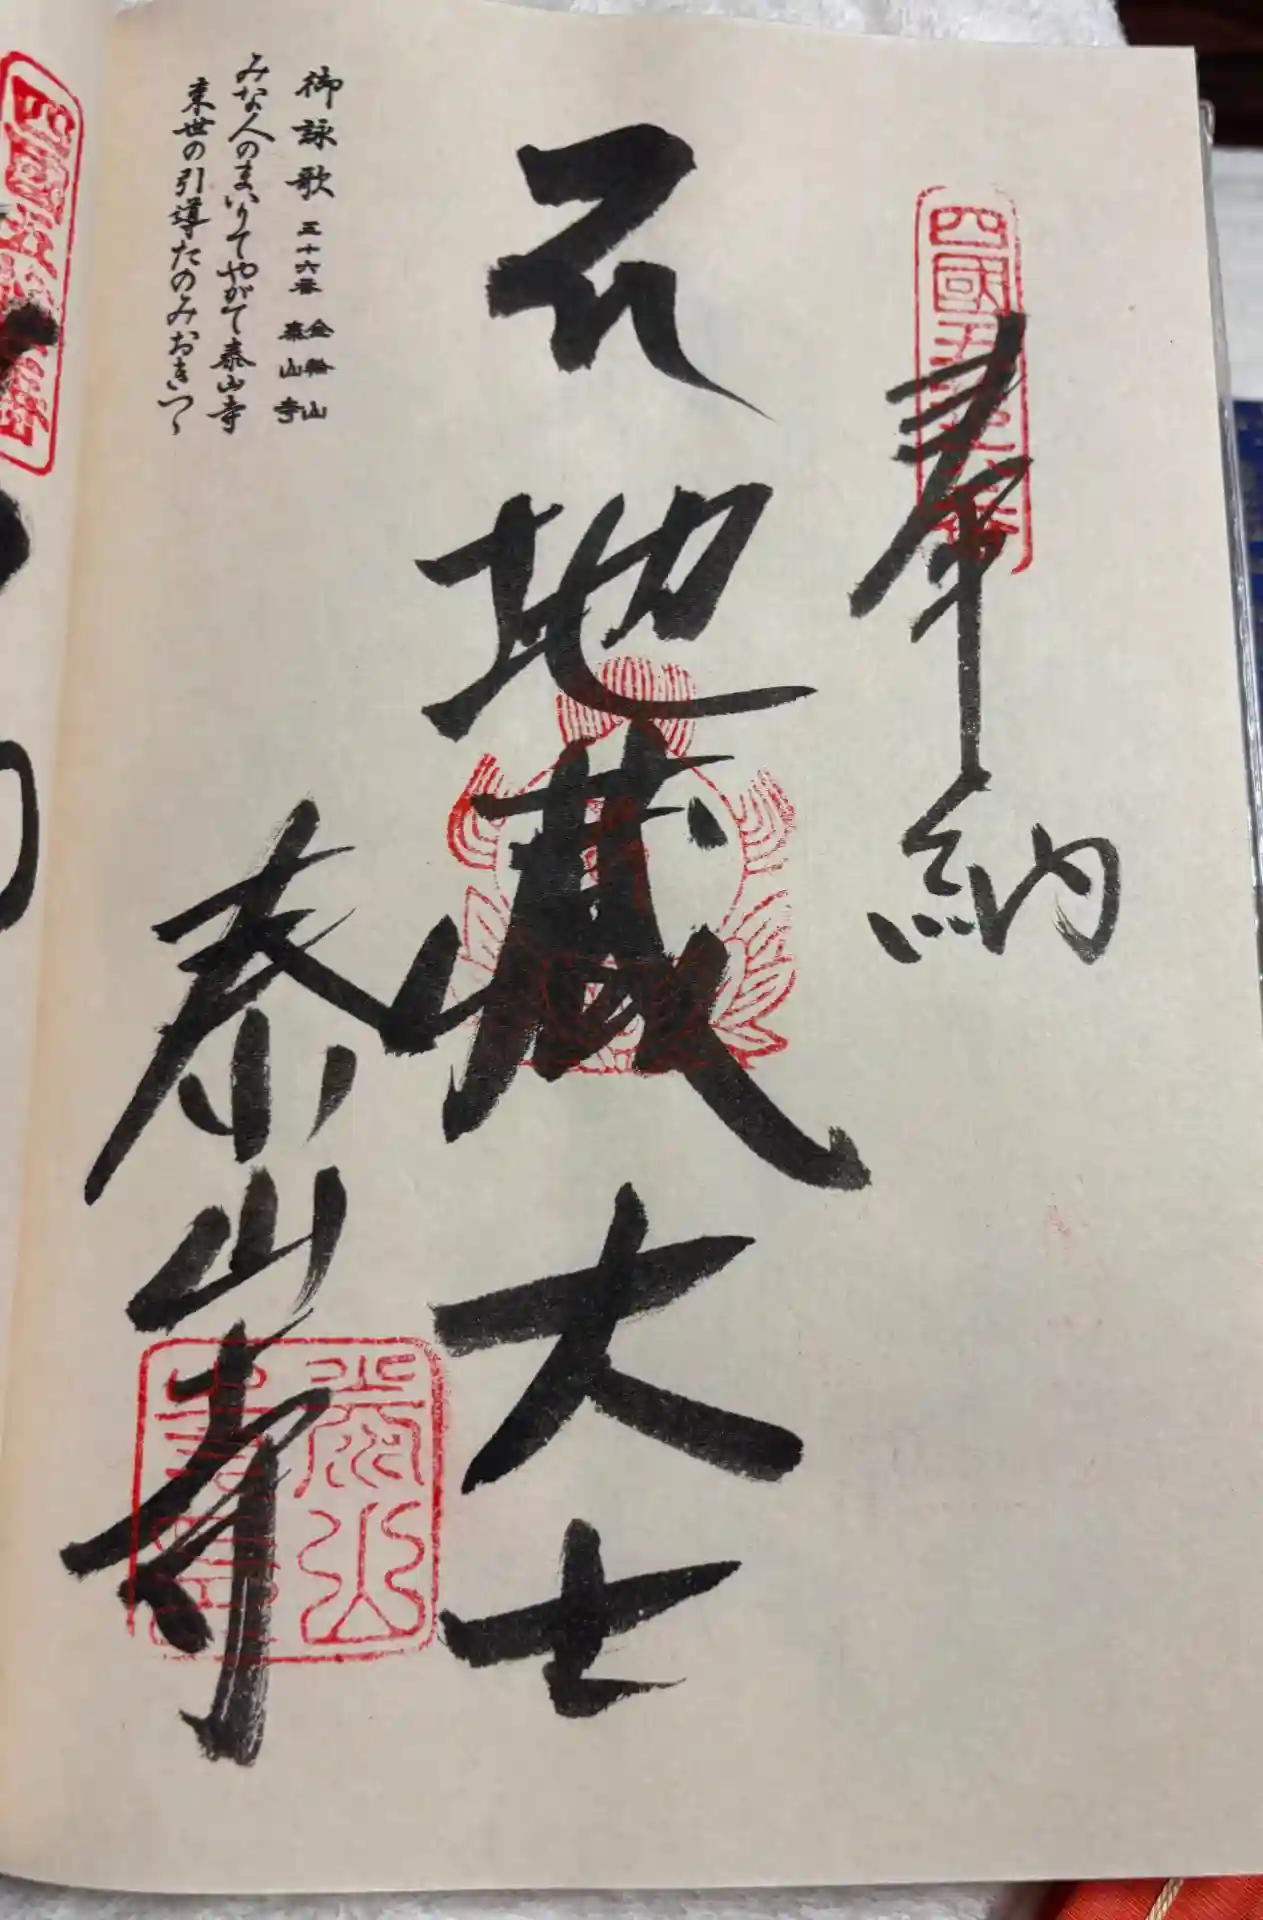 四國五十六番
奉納
地蔵大士
泰山寺
泰山
御詠歌 五十六番 金輪山 泰山寺
みな人のまいりてやがて泰山寺
来世の引導たのみおきつゝ